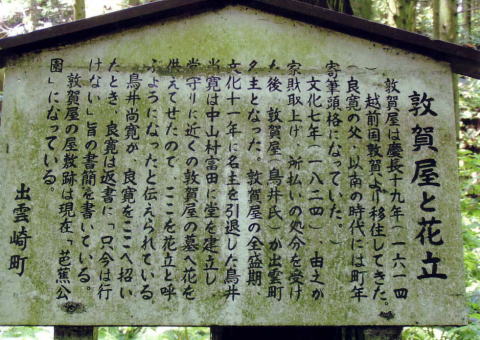 敦賀屋と花立
敦賀屋は慶長十九年(一六一四
越前国敦賀より移住してきた。
良寛の父・以南の時代には町年
寄筆頭格になっていた。)
文化七年(一八二四)、由之が
家財取上げ、所払いの処分を受け
た後、敦賀屋(鳥井氏)が出雲町
名主となった。敦賀屋の全盛期、
文化十一年に名主を引退した鳥井
当寛は中山村富田に堂を建立し、
堂守りに近くの敦賀屋の墓へ花を
供えてせたので、ここを花立と呼
ぶようになったと伝えられている。
鳥井尚寛が、良寛をここへ招い
たとき、良寛は返書に「只今は行
けない」旨の書簡を書いている。
敦賀屋の屋敷跡は現在「芭蕉公
園」になっている。
出雲崎町